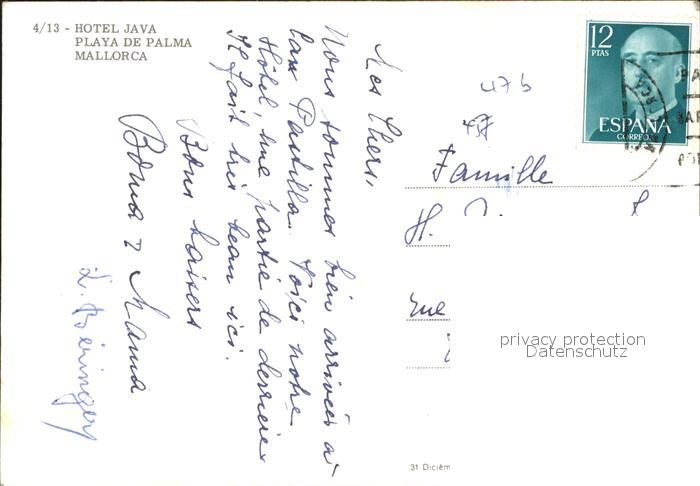 4/13 - HOTEL JAVA
PLAYA DE PALMA
MALLORCA
Mes Chers,
Nous sommes bien arrivées à
Las Pastilla. Voici notre
Hôtel, une partie de derrière
Il fait très beau ici.
Bons baisers
Bona & Mama
L. Béringer
12
PTAS
ESPAÑA
CORREOS
47 b
Famille
H.
rue
privacy protection
Datenschutz
31 Diciem